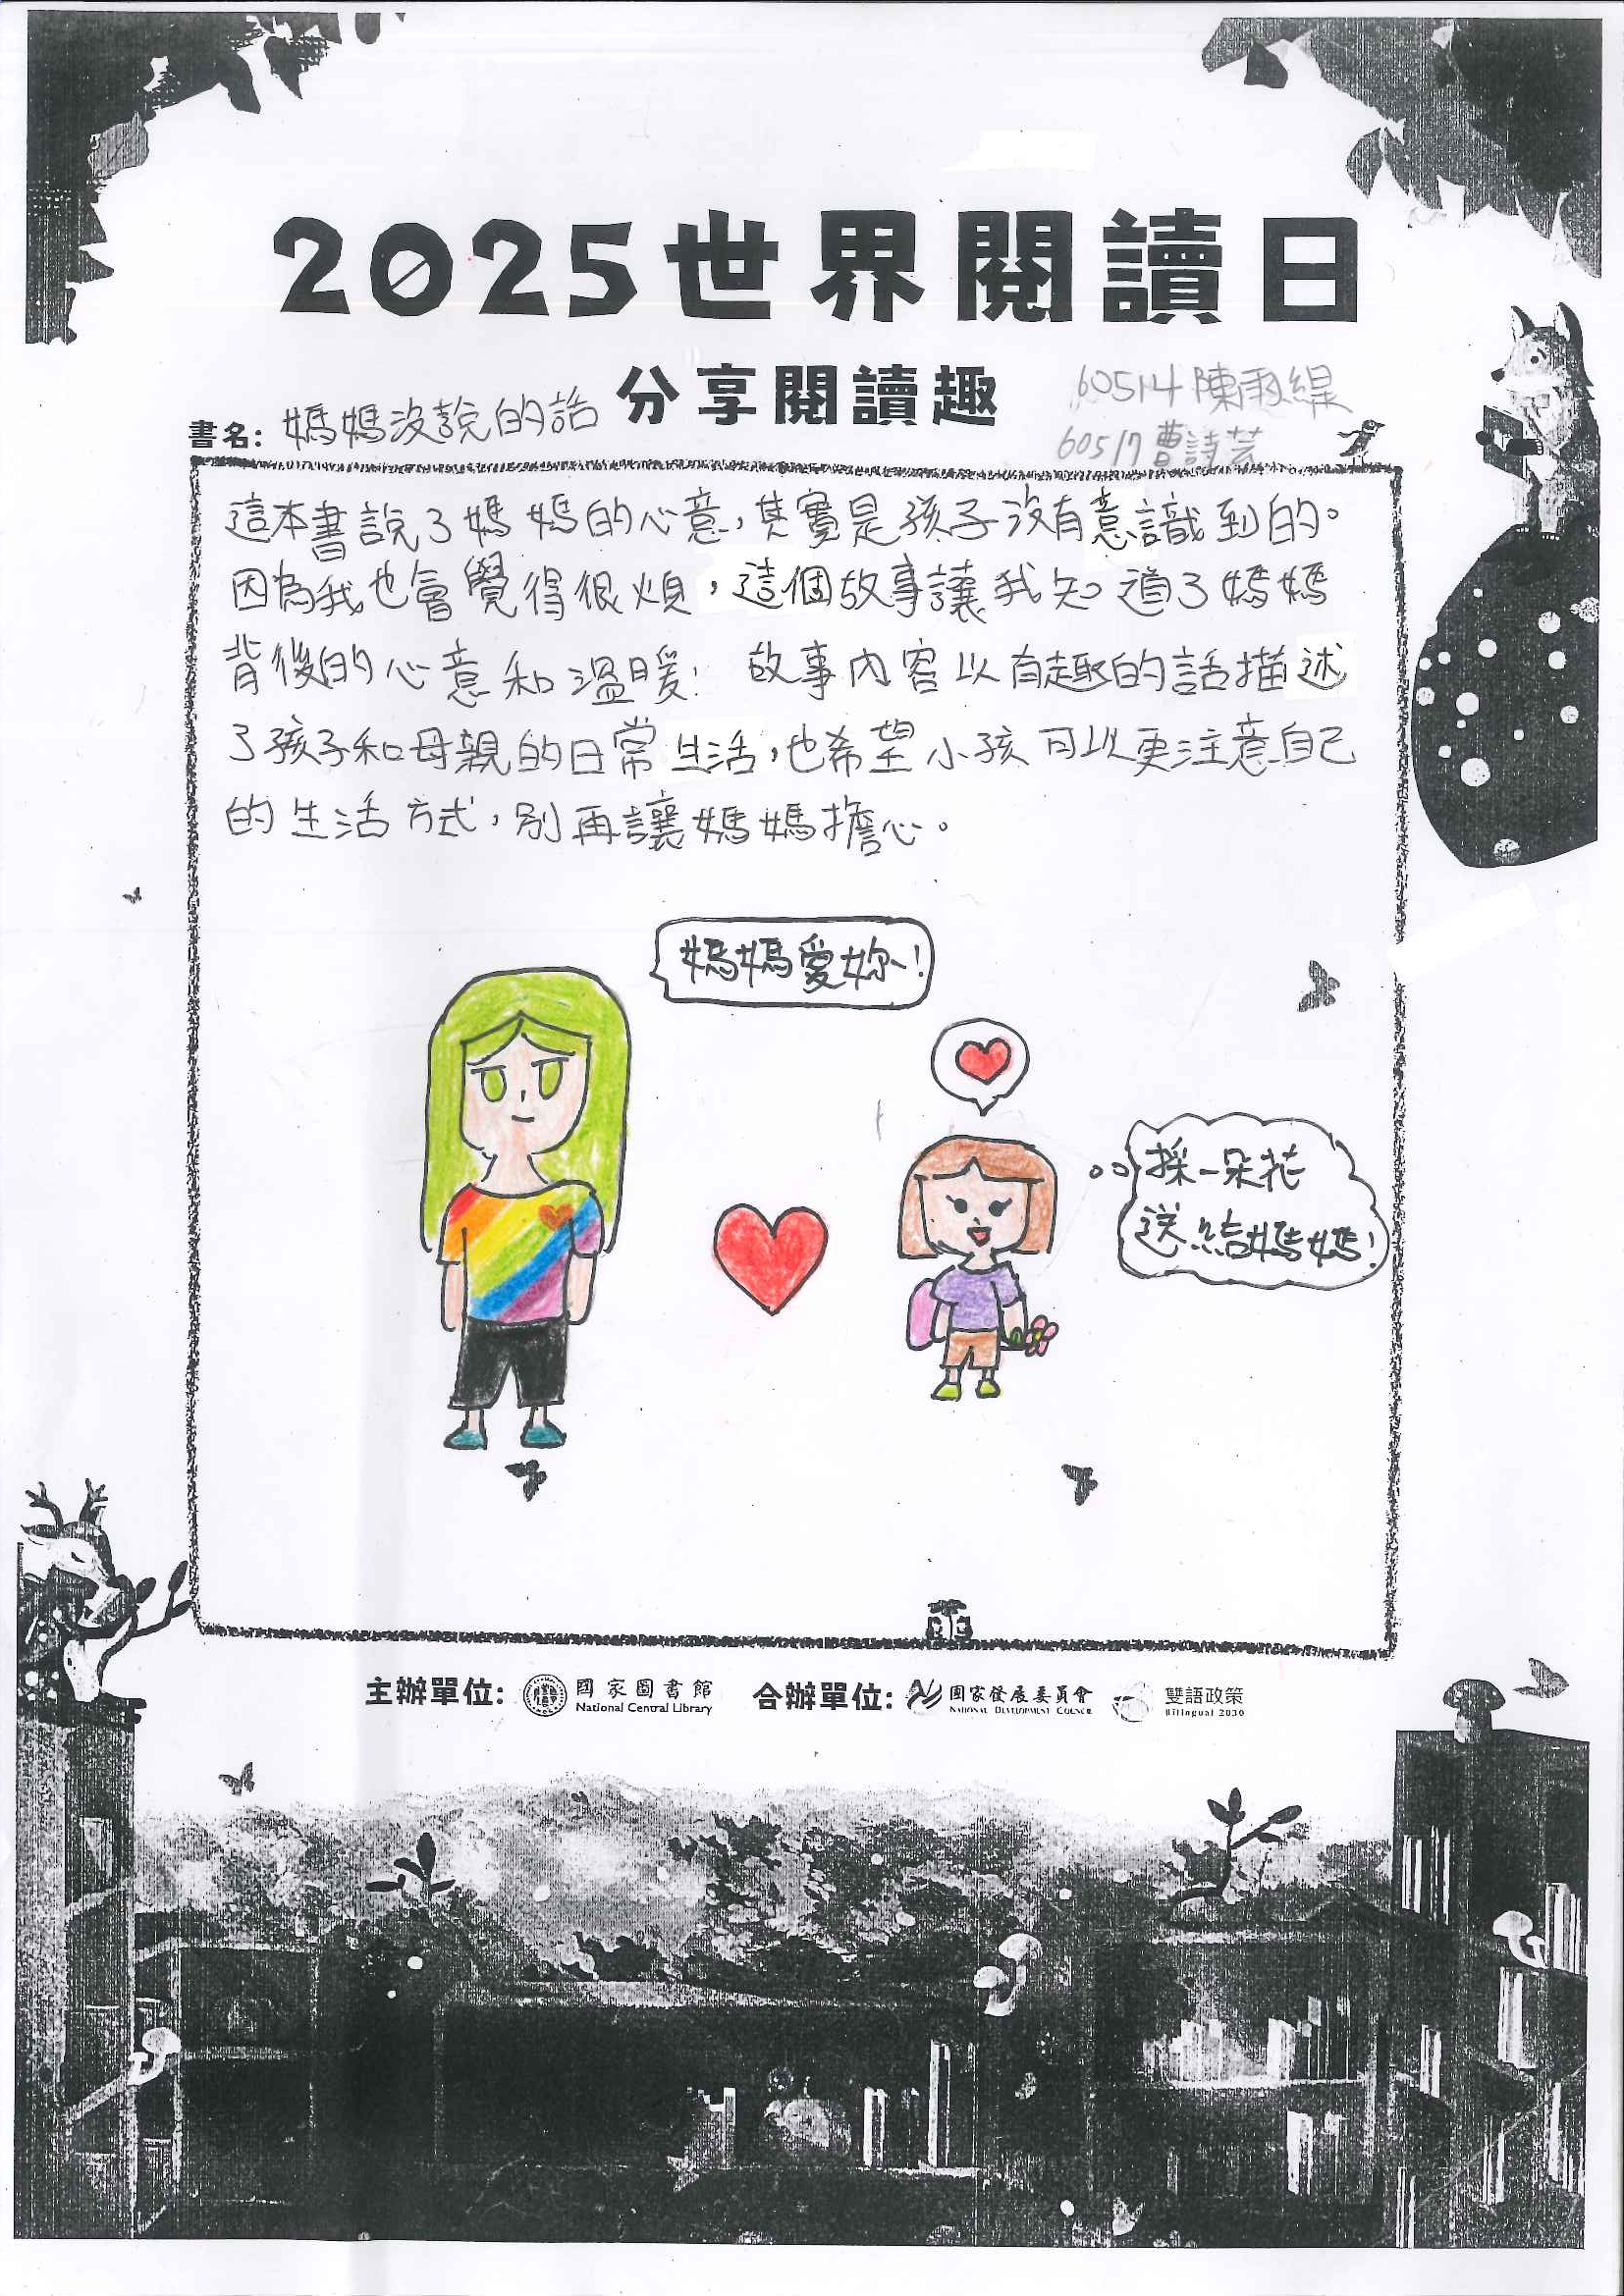 2025世界閱讀日
分享閱讀趣
書名: 媽媽沒說的話
60514 陳羽緹
60517 曹詩芸
這本書說了媽媽的心意,其實是孩子沒有意識到的。
因為我也會覺得很煩,這個故事讓我知道了媽媽
背後的心意和溫暖! 故事內容以有趣的話描述
了孩子和母親的日常生活,也希望小孩可以更注意自己
的生活方式,別再讓媽媽擔心。
媽媽愛妳!
採一朵花
送給媽媽!
主辦單位: 國家圖書館 National Central Library 合辦單位: 國家發展委員會 National Development Council 雙語政策 Bilingual 2030